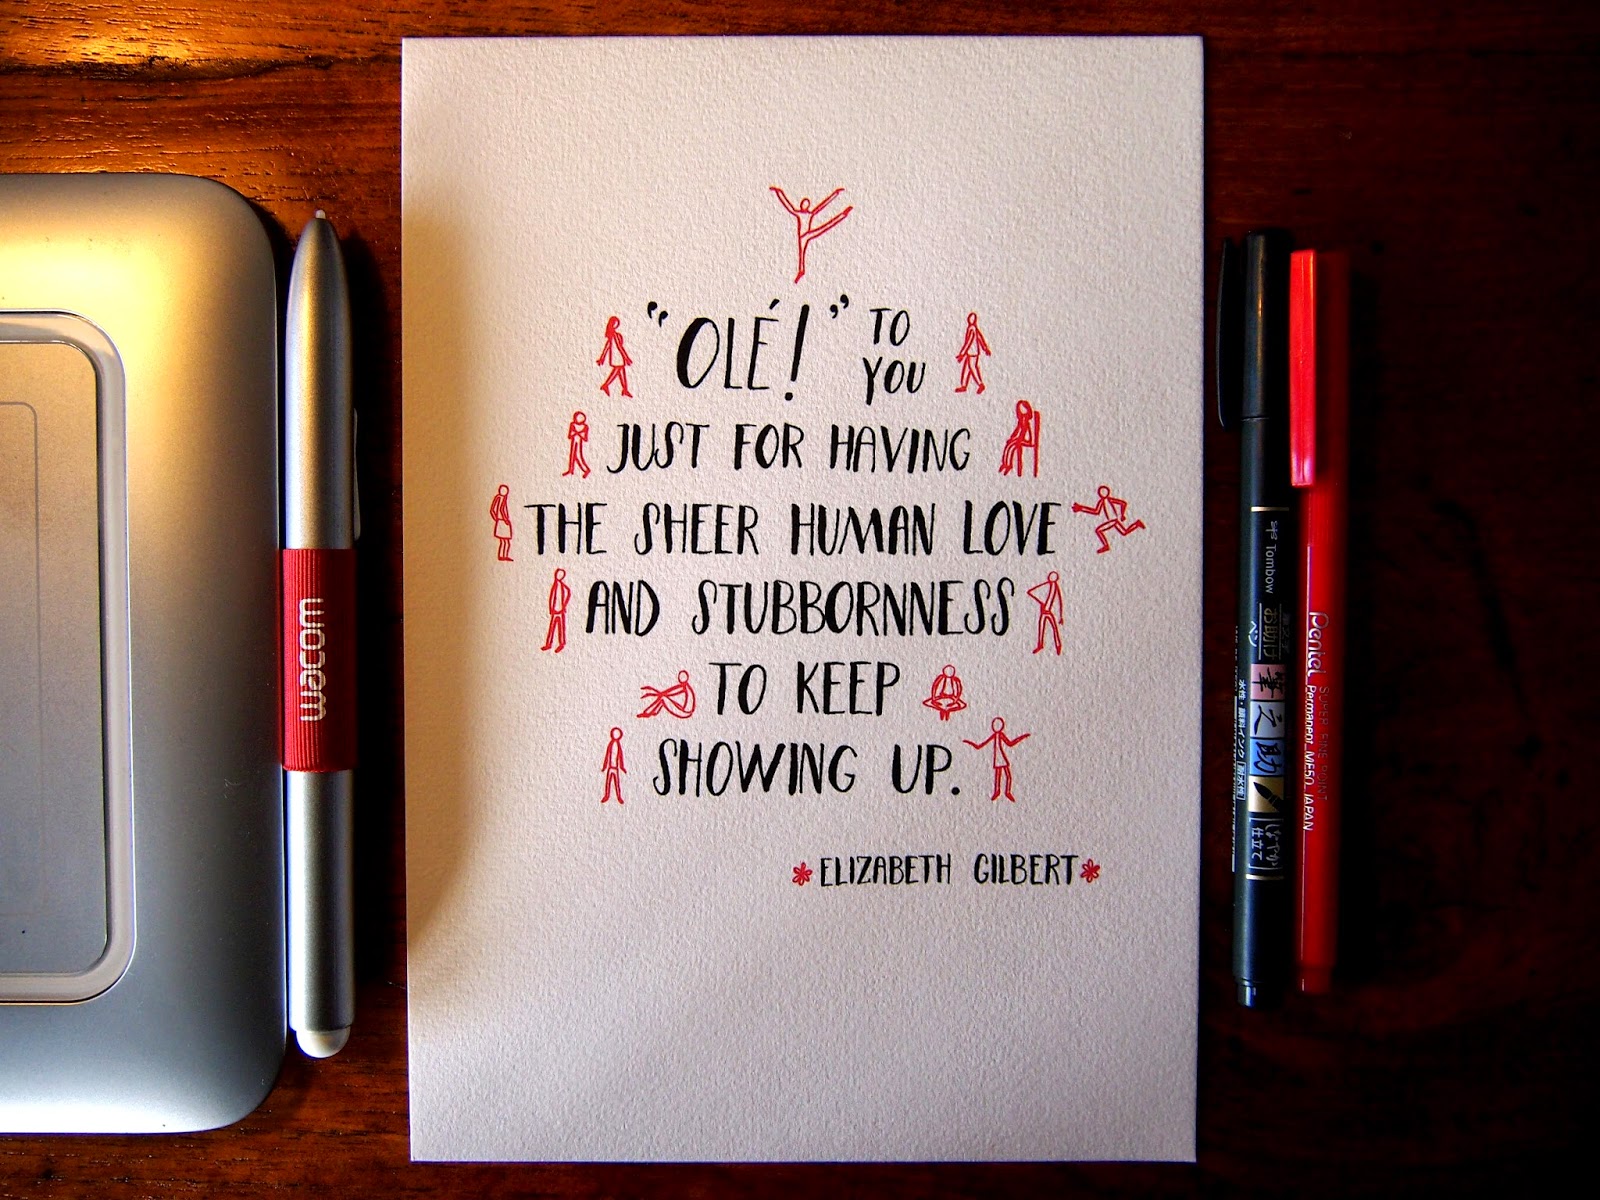 "OLÉ!" TO YOU
JUST FOR HAVING
THE SHEER HUMAN LOVE
AND STUBBORNNESS
TO KEEP
SHOWING UP.
*ELIZABETH GILBERT*
wacom
Tombow
水性・顔料インク
Pentel SUPER FINE POINT
Permanent MF50 JAPAN